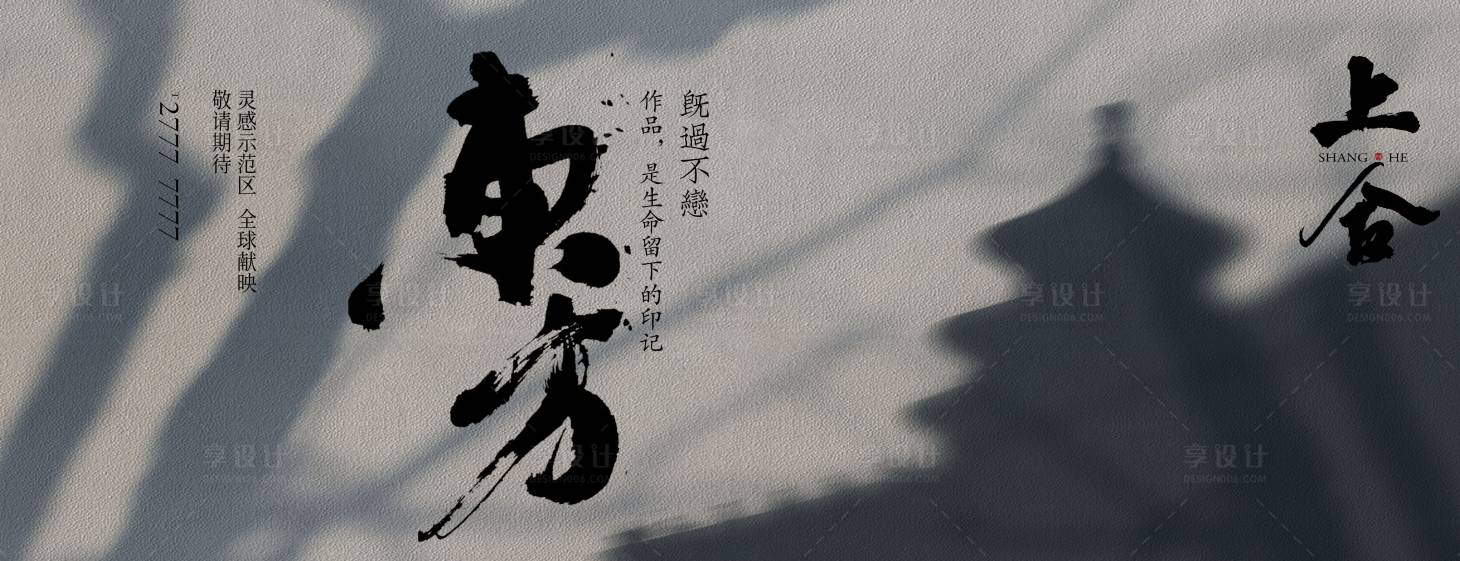 上
SHANG HE
合
既過不戀
作品，是生命留下的印记
東方
灵感示范区 全球献映
敬请期待
2777 7777
享设计
DESIGN006.COM